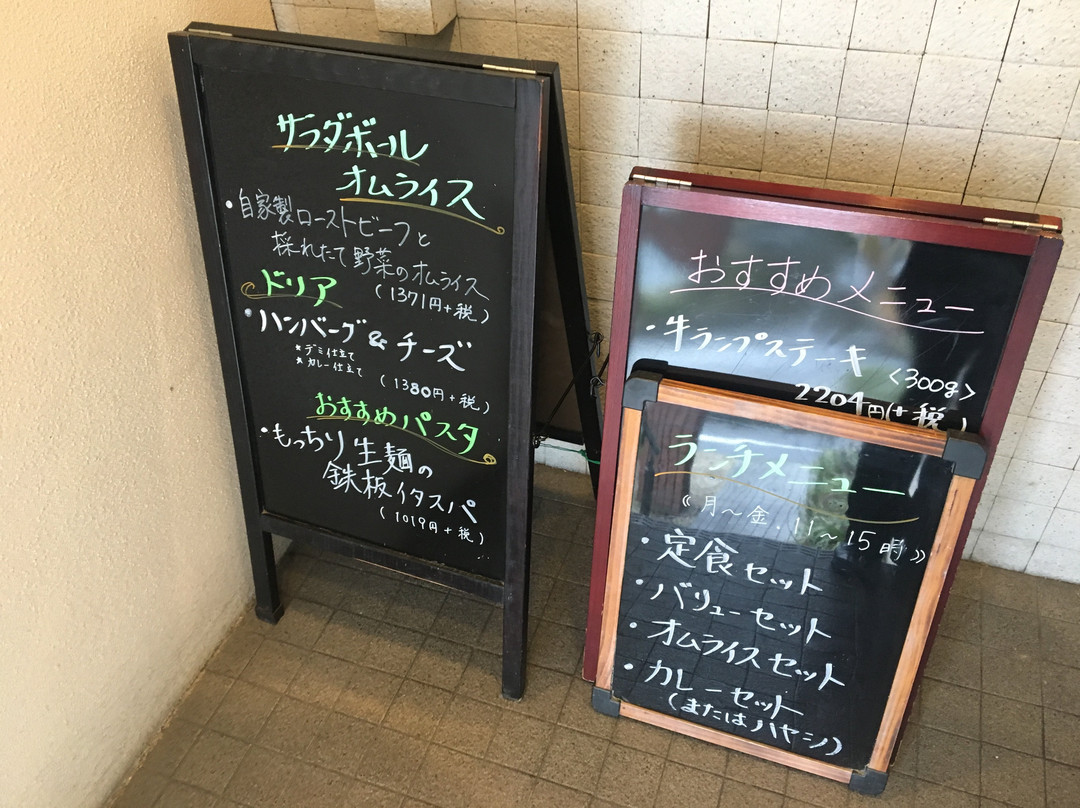 サラダボール
オムライス
・自家製ローストビーフと
採れたて野菜のオムライス
(1371円+税)
ドリア
・ハンバーグ&チーズ
*デミ仕立て
*カレー仕立て
(1380円+税)
おすすめパスタ
・もっちり生麺の
鉄板イタスパ
(1019円+税)
おすすめメニュー
・牛ランプステーキ
<300g>
2204円(+税)
ランチメニュー
《月~金.11~15時》
・定食セット
・バリューセット
・オムライスセット
・カレーセット
(またはハヤシ)